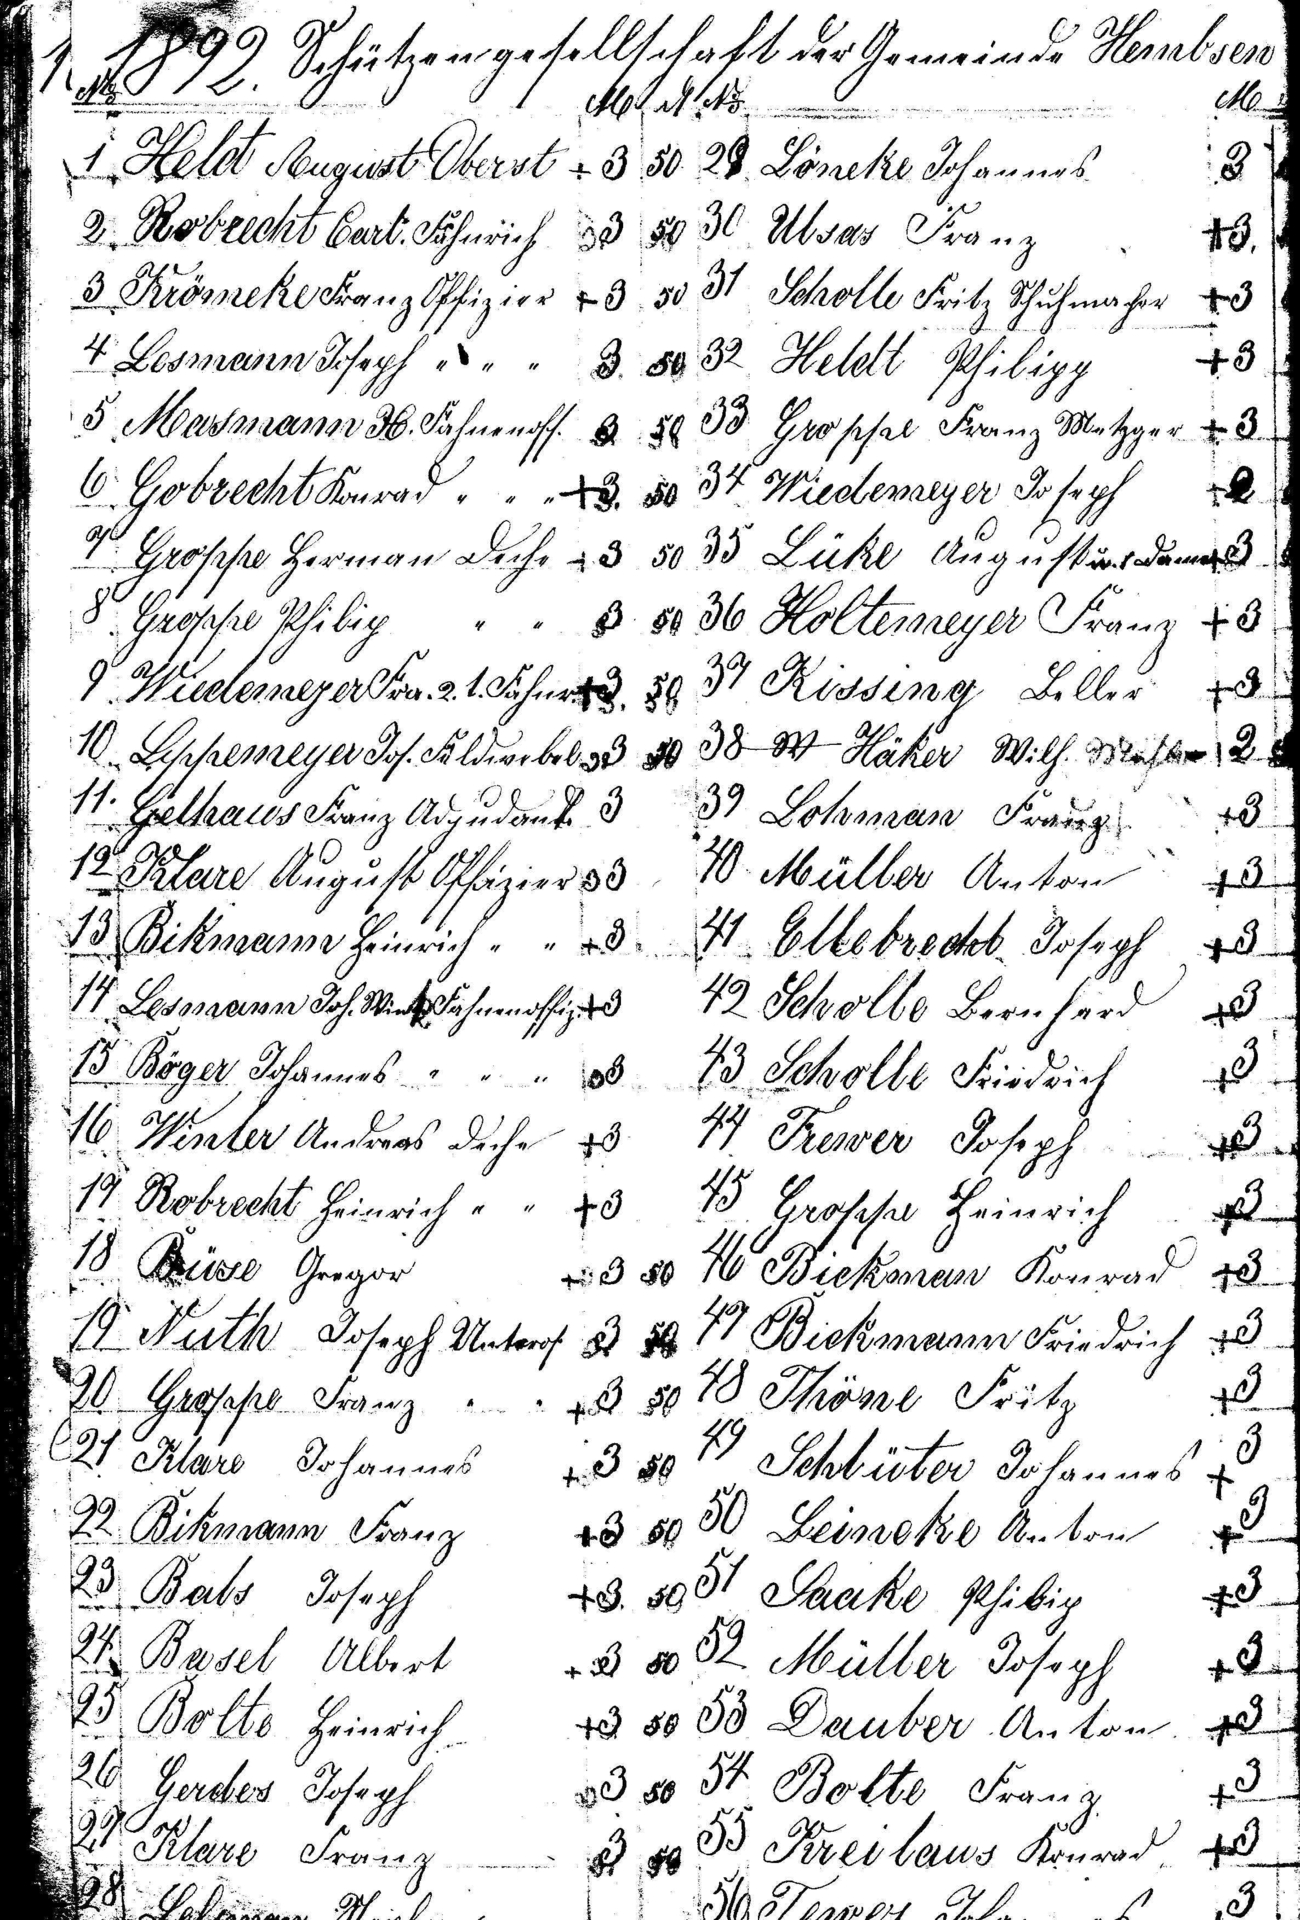 1892. Schützengesellschaft der Gemeinde Hembsen
No M No M
1 Heldt August Oberst + 3 50
2 Robrecht Carl. Fähnrich 3 50
3 Krömeke Franz Offizier + 3 50
4 Lesmann Joseph " " " 3 50
5 Masmann H. Fahnenoff. 3 50
6 Gobrecht Konrad " " " + 3. 50
7 Groppe Herman Deche + 3 50
8 Groppe Philip " " 3 50
9 Wiedemeyer Fra. 2. 1. Fähnr. + 3. 50
10 Leppemeyer Jos. Feldwebel 3 50
11. Gelhaus Franz Adjudant. 3
12 Klare August Offizier 3
13 Bikmann Heinrich " " + 3
14 Lesmann Joh. Fahnenoffiz. + 3
15 Böger Johannes " " " 3
16 Winter Andreas Deche + 3
17 Robrecht Heinrich " " + 3
18 Büse Gregor + 3 50
19 Nuth Joseph Unterof. 3 50
20 Groppe Franz " " + 3 50
21 Klare Johannes + 3 50
22 Bikmann Franz + 3 50
23 Bals Joseph + 3. 50
24. Busel Albert + 3 50
25 Bolte Heinrich + 3 50
26 Gerdes Joseph 3 50
27 Klare Franz 3 50
28
29 Löneke Johannes 3
30 Ulsas Franz + 3.
31 Scholle Fritz Schuhmacher + 3
32 Heldt Philipp + 3
33 Groppe Franz Metzger + 3
34 Wiedemeyer Joseph 2
35 Lüke August + 3
36 Holtemeyer Franz + 3
37 Kissing Beller + 3
38 Häker Wilh. 2
39 Lohman Franz + 3
40 Müller Anton + 3
41 Ellebrecht Joseph + 3
42 Scholle Bernhard + 3
43 Scholle Friedrich + 3
44 Frewer Joseph + 3
45 Groppe Heinrich + 3
46 Bickman Konrad + 3
47 Bickmann Friedrich + 3
48 Thöne Fritz + 3
49 Schlüter Johannes + 3
50 Leineke Anton + 3
51 Saake Philip + 3
52 Müller Joseph + 3
53 Dauber Anton + 3
54 Bolte Franz + 3
55 Kreilaus Konrad + 3
56 3